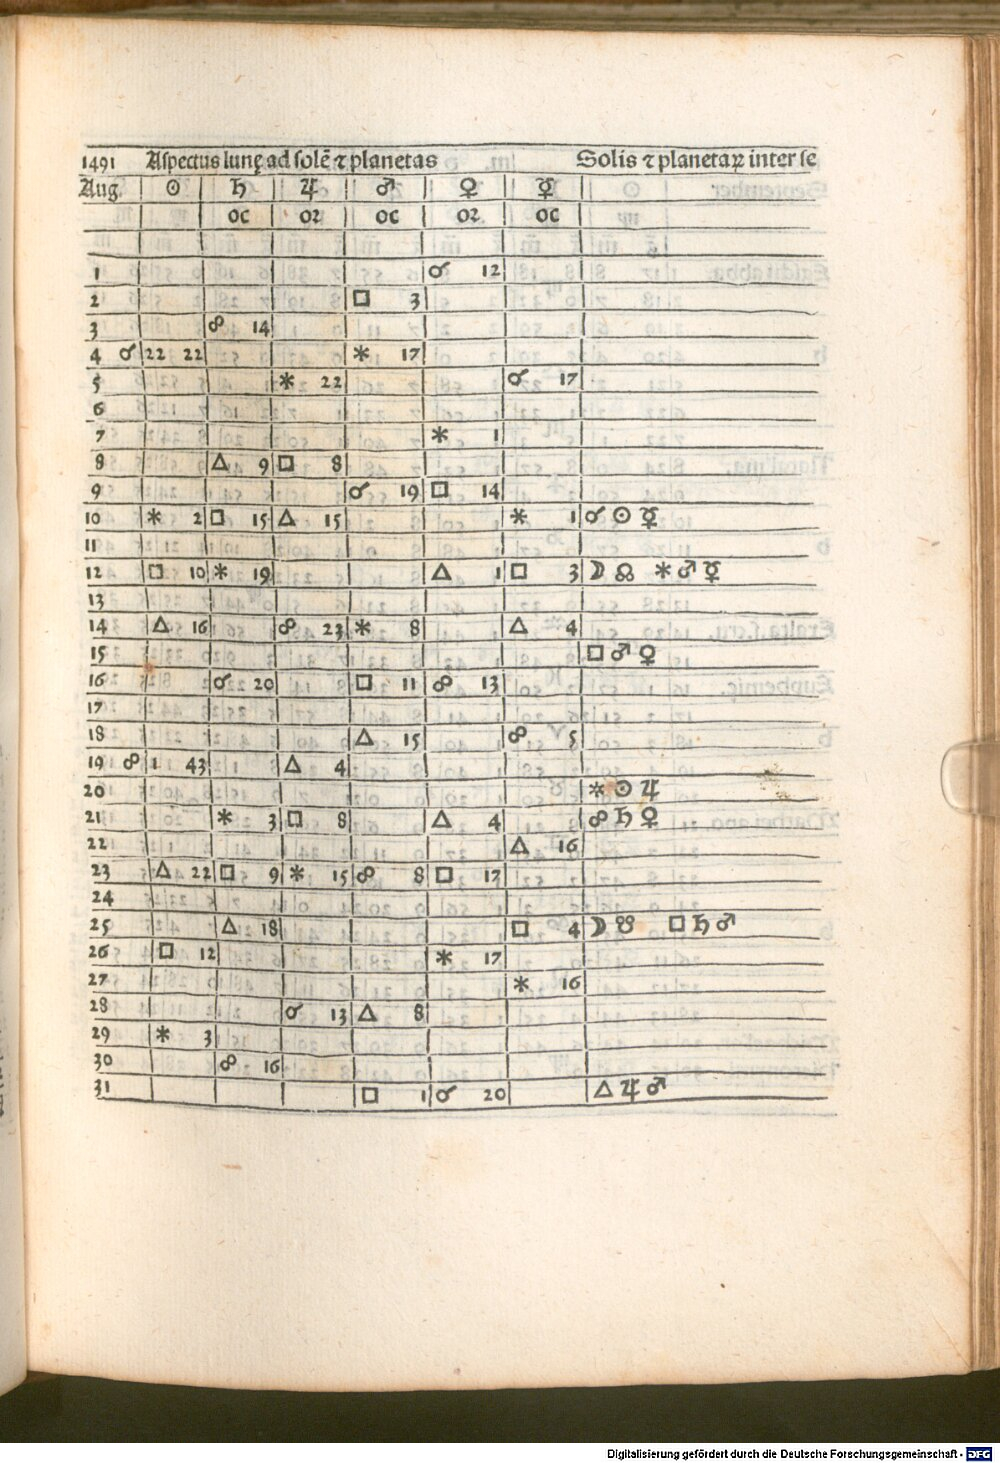 1491 Aspectus lunę ad solē ⁊ planetas Solis ⁊ planetaꝝ inter se
Aug. ☉ ♄ ♃ ♂ ♀ ☿
oc or oc or oc
1 ☌ 12
2 □ 3
3 ☍ 14
4 ☌ 22 22 ⚹ 17
5 ⚹ 22 ☌ 17
6
7 ⚹ 1
8 △ 9 □ 8
9 ☌ 19 □ 14
10 ⚹ 2 □ 15 △ 15 ⚹ 1 ☌ ☉ ☿
11
12 □ 10 ⚹ 19 △ 1 □ 3 ☽ ☊ ⚹ ♂ ☿
13
14 △ 16 ☍ 23 ⚹ 8 △ 4
15 □ ♂ ♀
16 ☌ 20 □ 11 ☍ 13
17
18 △ 15 ☍ 5
19 ☍ 1 43 △ 4
20 ⚹ ☉ ♃
21 ⚹ 3 □ 8 △ 4 ☍ ♄ ♀
22 △ 16
23 △ 22 □ 9 ⚹ 15 ☍ 8 □ 17
24
25 △ 18 □ 4 ☽ ☋ □ ♄ ♂
26 □ 12 ⚹ 17
27 ⚹ 16
28 ☌ 13 △ 8
29 ⚹ 3
30 ☍ 16
31 □ 1 ☌ 20 △ ♃ ♂
Digitalisierung gefördert durch die Deutsche Forschungsgemeinschaft - DFG